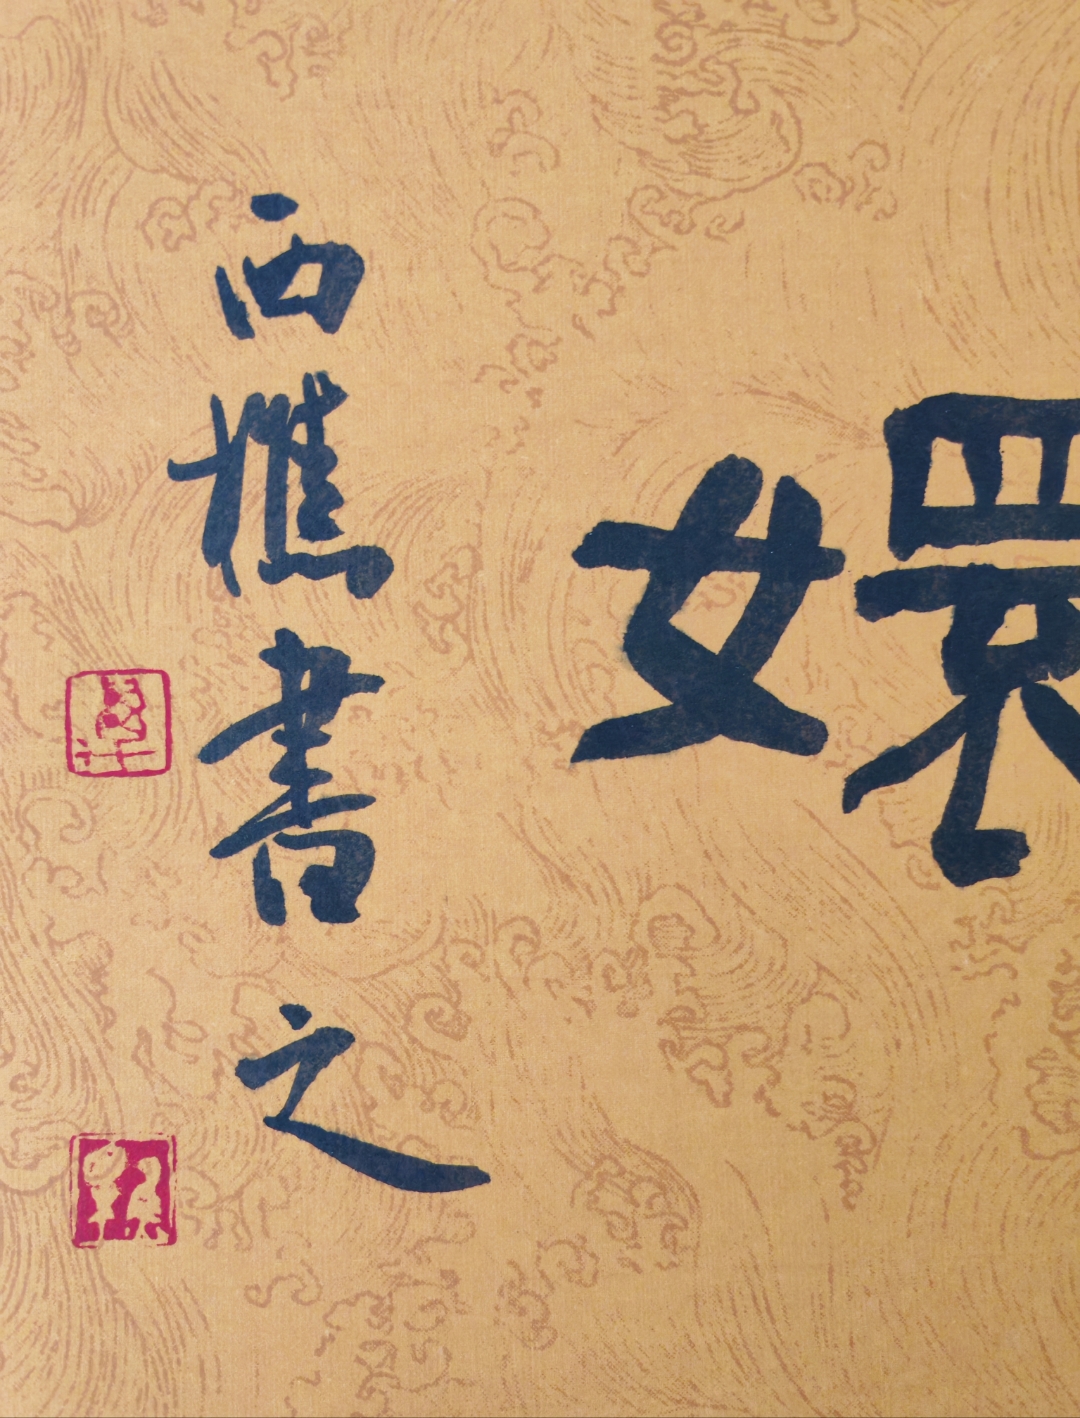 嬛
西樵書之